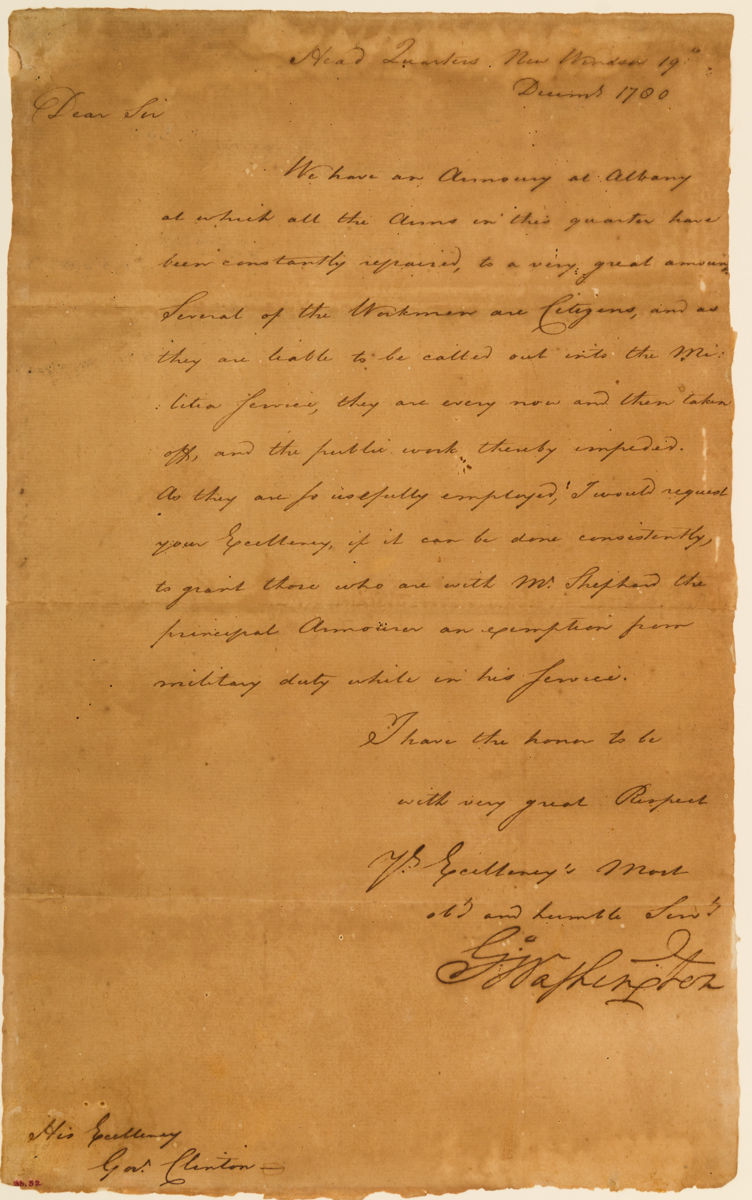 Head Quarters New Windsor 19th
Decemr 1780
Dear Sir
We have an Armoury at Albany
at which all the Arms in this quarter have
been constantly repaired, to a very great amount
Several of the Workmen are Citizens, and as
they are liable to be called out into the Mi:
:litia Service, they are every now and then taken
off, and the public work thereby impeded.
As they are so usefully employed, I would request
your Excellency, if it can be done consistently,
to grant those who are with Mr. Shephard the
principal Armourer an exemption from
military duty while in his Service.
I have the honor to be
with very great Respect
Yr. Excellency's Most
obt and humble Servt
Go: Washington
His Excellency
Govr. Clinton —